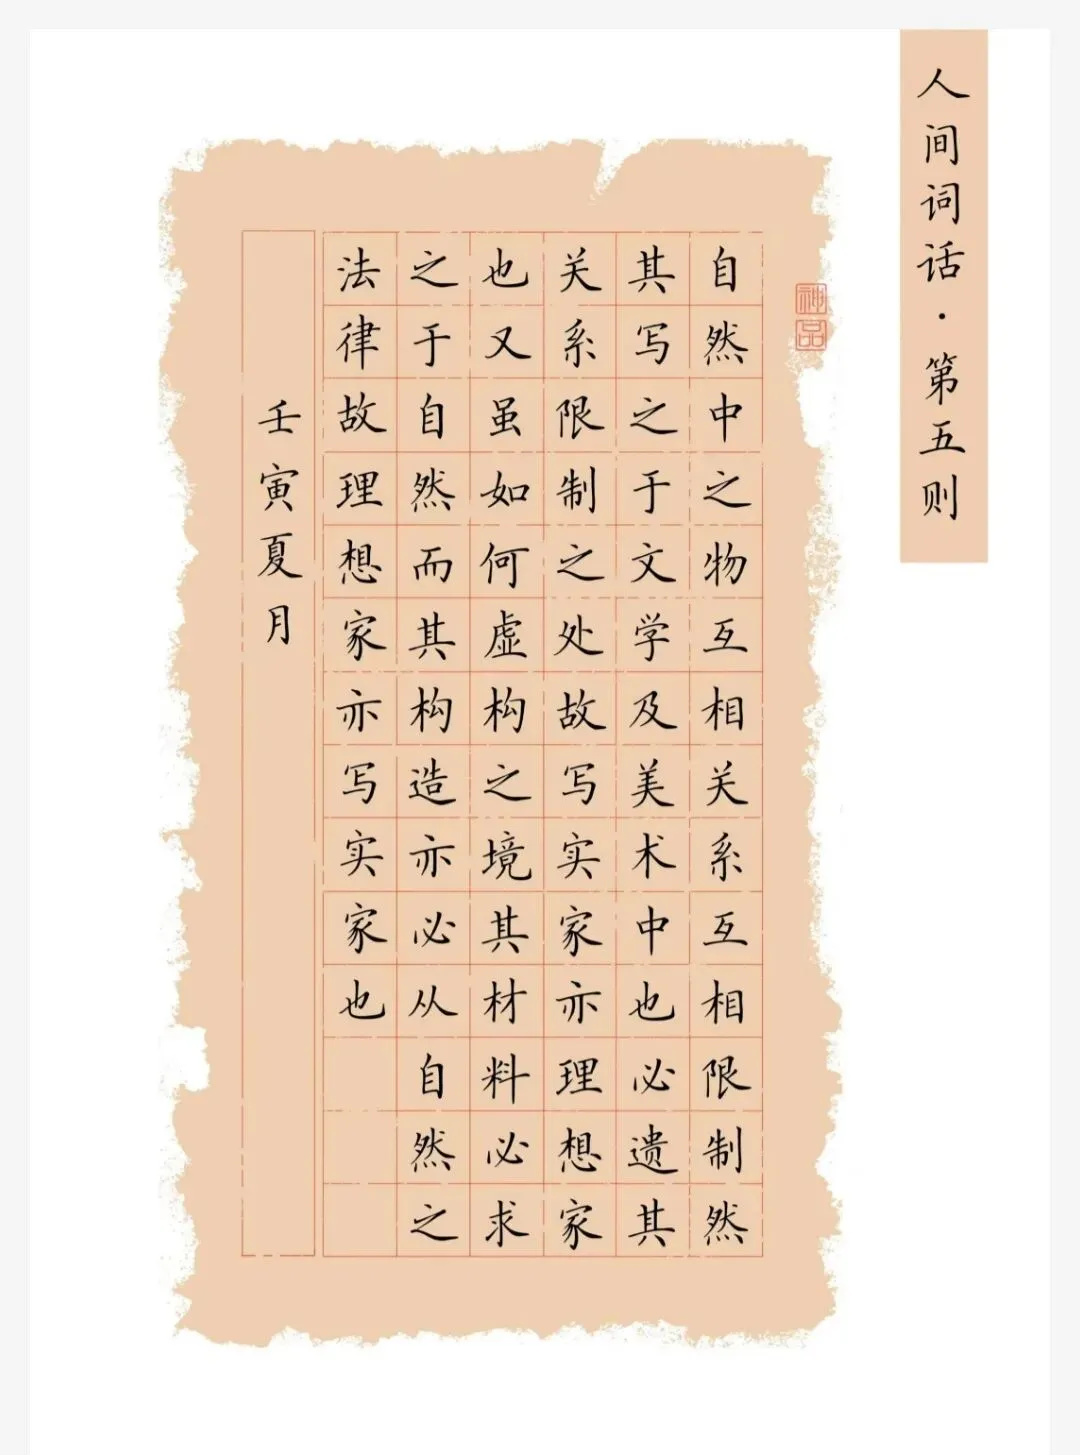 人间词话·第五则
神品
自然中之物互相关系互相限制然
其写之于文学及美术中也必遗其
关系限制之处故写实家亦理想家
也又虽如何虚构之境其材料必求
之于自然而其构造亦必从自然之
法律故理想家亦写实家也
壬寅夏月